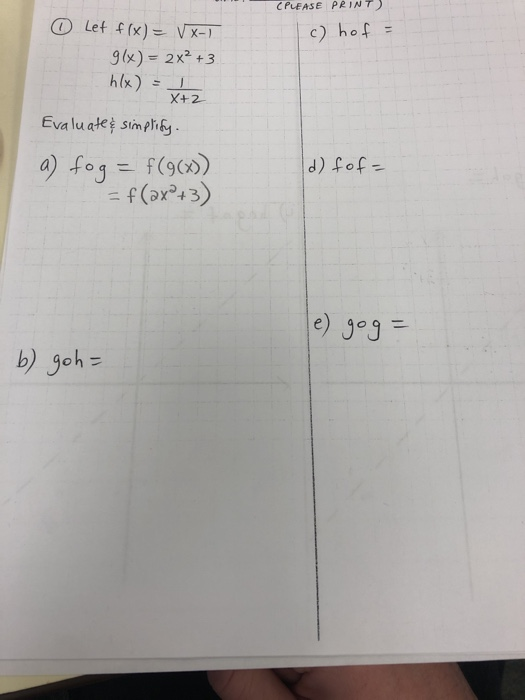 (PLEASE PRINT)
① Let f(x) = √x-1
g(x) = 2x² + 3
h(x) = 1/x+2
Evaluate & simplify.
a) fog = f(g(x))
= f(2x²+3)
b) goh =
c) hof =
d) fof =
e) gog =